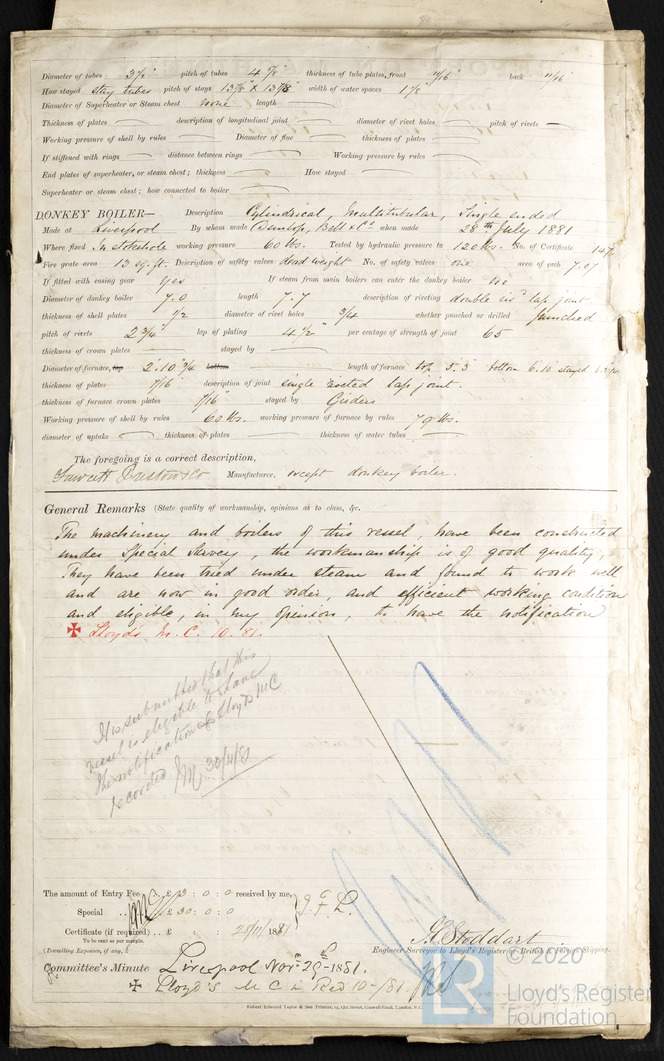 Diameter of tubes 3½" pitch of tubes 4 7/8" thickness of tube plates, front 11/16" back 11/16
How stayed stay tubes pitch of stays 13 7/8 X 13 7/8" width of water spaces 1 1/8"
Diameter of Superheater or Steam chest none length
Thickness of plates description of longitudinal joint diameter of rivet holes pitch of rivets
Working pressure of shell by rules Diameter of flue thickness of plates
If stiffened with rings distance between rings Working pressure by rules
End plates of superheater, or steam chest; thickness How stayed
Superheater or steam chest; how connected to boiler
DONKEY BOILER— Description Cylindrical, Multitubular, Single ended
Made at Liverpool By whom made Dunlop, Bell & Co when made 28th July 1881
Where fixed In Stokehole working pressure 60 lbs. Tested by hydraulic pressure to 120 lbs. No. of Certificate
Fire grate area 13 sq. ft. Description of safety valves dead weight No. of safety valves one area of each 7.07
If fitted with easing gear yes If steam from main boilers can enter the donkey boiler no
Diameter of donkey boiler 7.0 length 7.7 description of riveting double riv'd lap joint
thickness of shell plates 1/2 diameter of rivet holes 3/4 whether punched or drilled punched
pitch of rivets 2 3/4" lap of plating 4 1/2" per centage of strength of joint 65
thickness of crown plates stayed by
Diameter of furnace, top 2'.10 3/4 bottom length of furnace top 5.3 bottom 6.10 stayed
thickness of plates 7/16" description of joint single riveted lap joint.
thickness of furnace crown plates 7/16" stayed by Girders
Working pressure of shell by rules 60 lbs. working pressure of furnace by rules 79 lbs.
diameter of uptake thickness of plates thickness of water tubes
The foregoing is a correct description,
Fawcett Preston & Co Manufacturer. except donkey boiler.
General Remarks (State quality of workmanship, opinions as to class, &c.
The machinery and boilers of this vessel, have been constructed
under Special Survey, the workmanship is of good quality,
They have been tried under steam and found to work well
and are now in good order, and efficient working condition
and eligible, in my opinion, to have the notification
✠ Lloyd's M.C. 10.81.
It is submitted that this
vessel is eligible to have
the notification of Lloyd's MC
recorded
The amount of Entry Fee .. £ 3 : 0 : 0 received by me,
Special .. £ 30 : 0 : 0 J.F.L.
Certificate (if required) .. £ : : 28/11/1881
To be sent as per margin.
(Travelling Expenses, if any, £
Stoddart
Engineer Surveyor to Lloyd's Register of British & Foreign Shipping.
Committee's Minute Liverpool Nov. 29th 1881.
✠ Lloyd's M C in Red 10-/81.
Robert Edmund Taylor & Son Printers, 19, Old Street, Goswell Road, London, E.C.
© 2020
LR
Lloyd's Register
Foundation